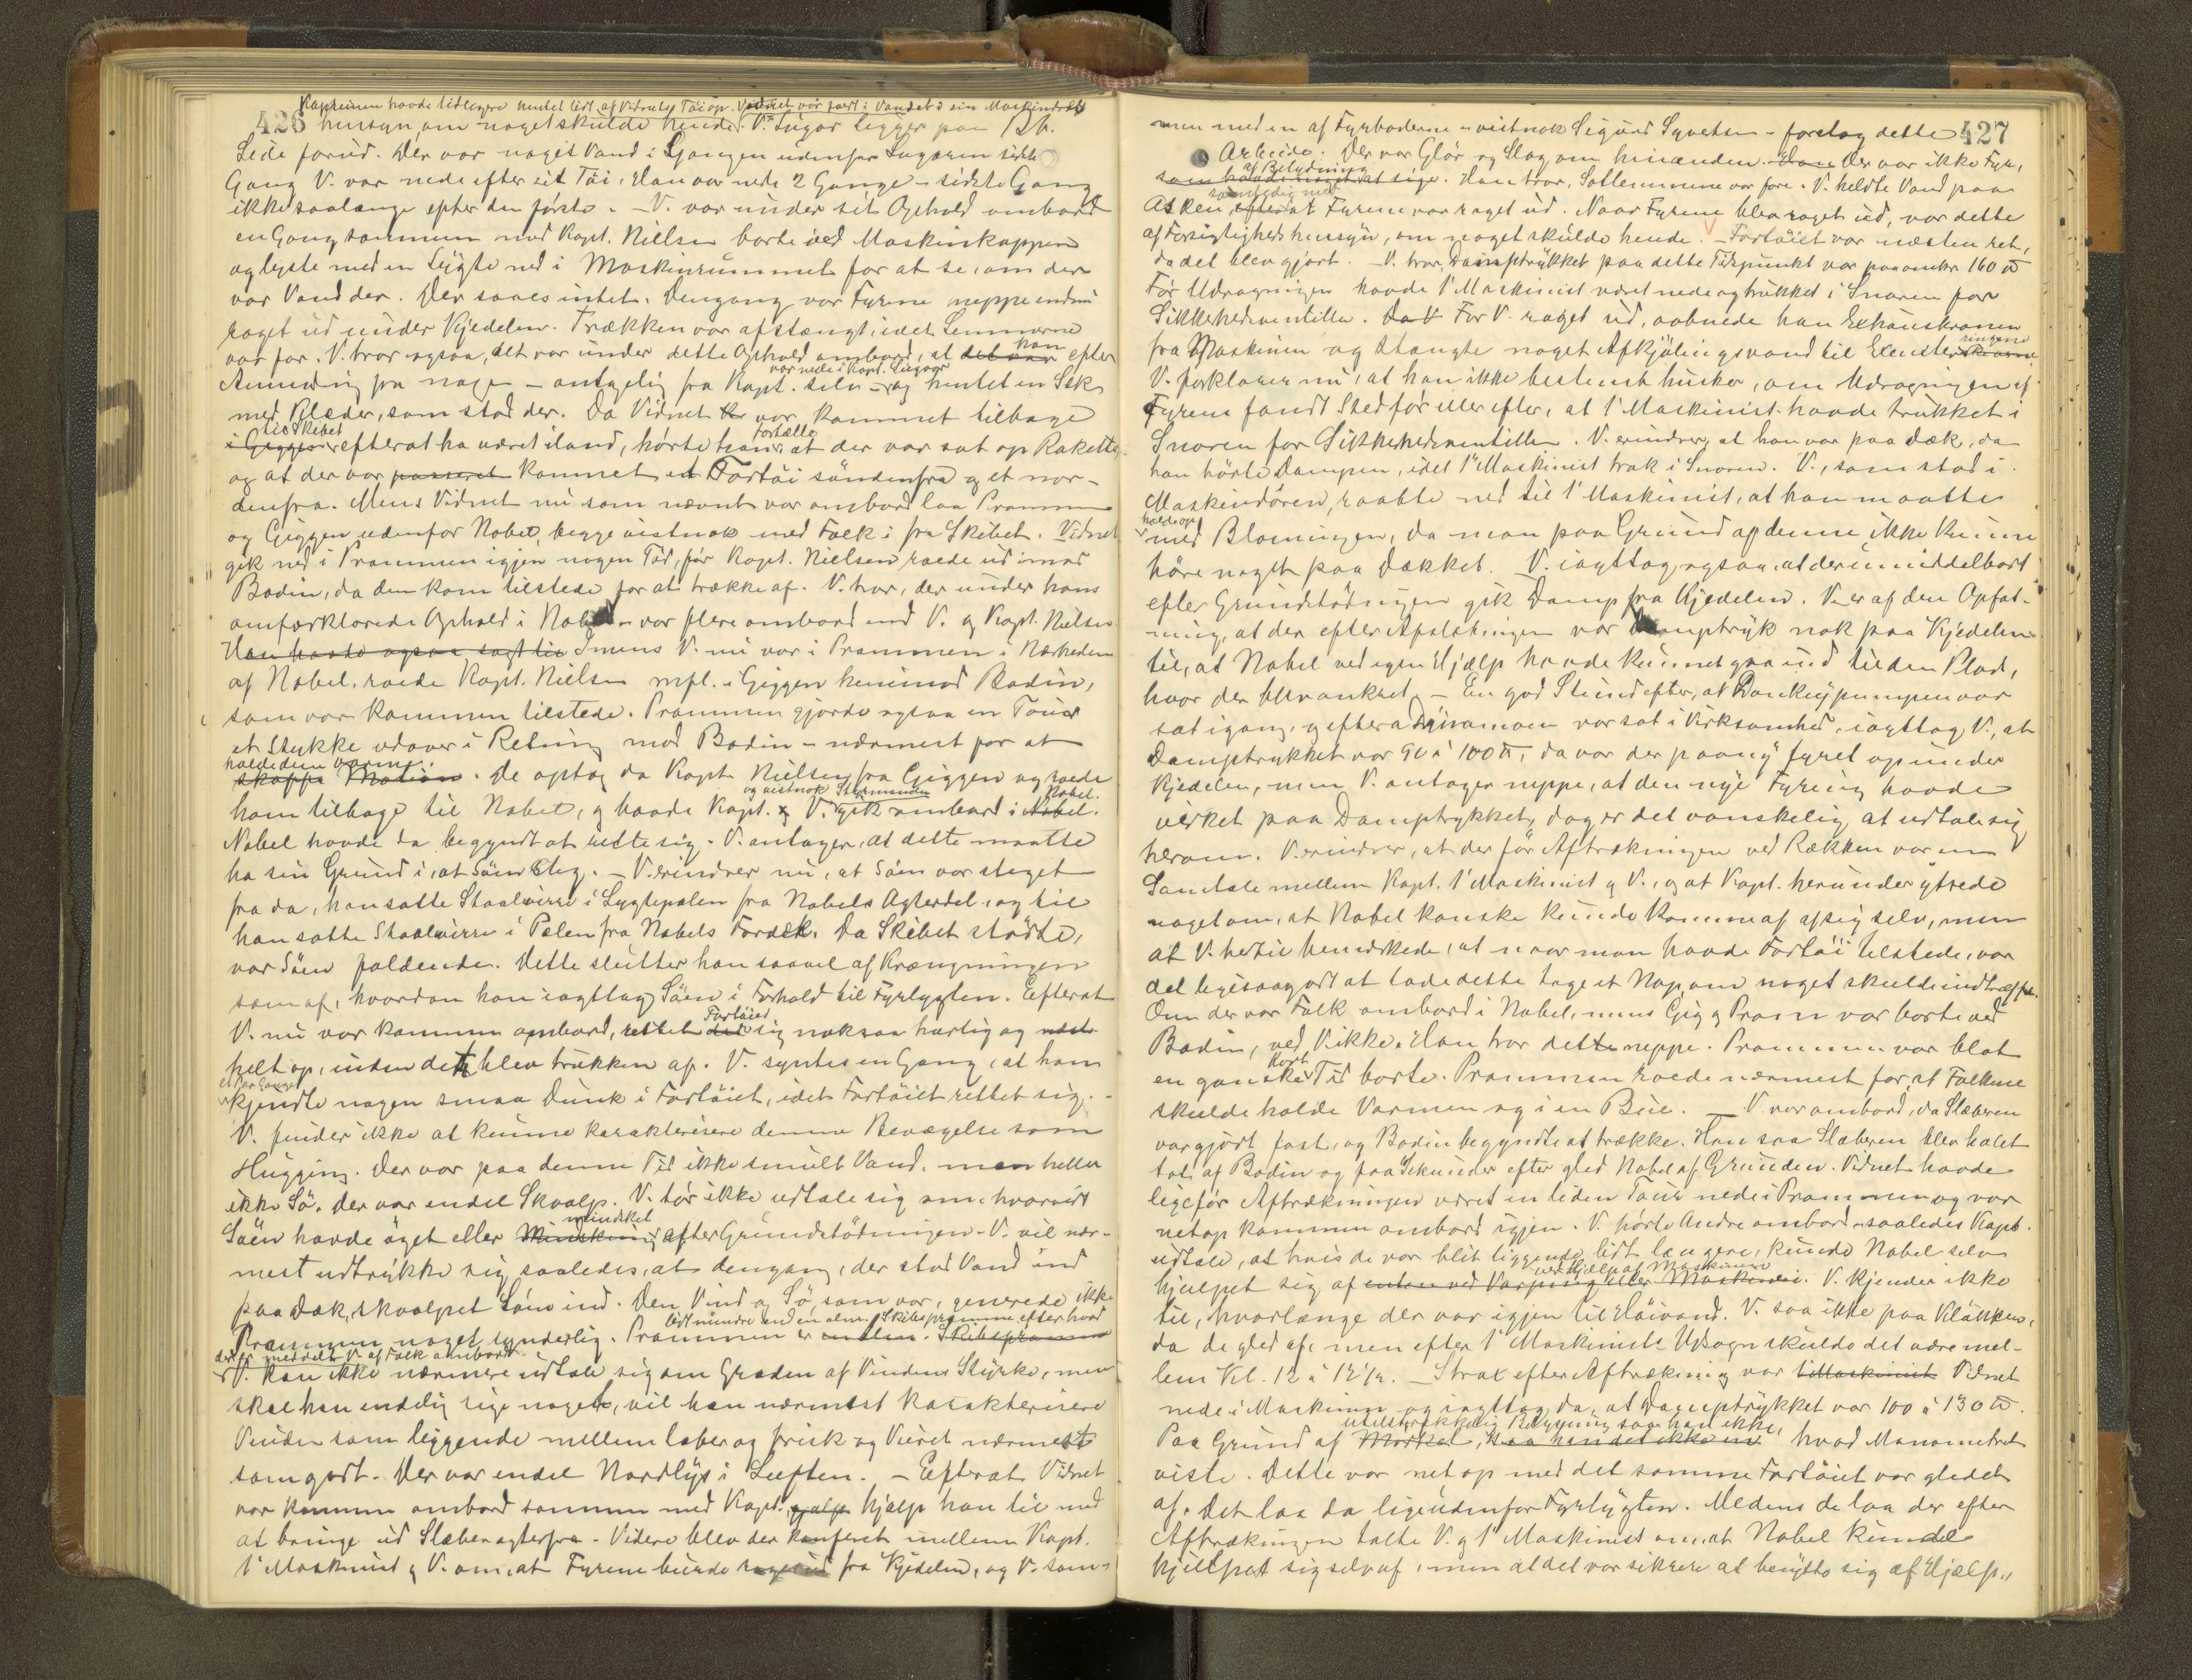 Kapteinen havde tidligere hentet lidt af Vidnets Töi op. Vidnet var först i Vandet i sin Maskindragt
426 hensyn, om noget skulde hende. V.s Lugar ligger paa Bb.
Side forud. Der var noget Vand i Gangen udenfor Lugaren sidste
Gang V. var nede efter sit Töi. Han var nede 2 Gange – sidste Gang
ikke saalænge efter den förste. – V. var under sit Ophold ombord
en Gang sammen med Kapt. Nielsen borte ved Maskinkappen
og lyste med en Lygte ned i Maskinrummet for at se, om der
var Vand der. Der saaes intet. Dengang var Fyrene neppe endnu
raget ud under Kjedelen. Trækken var afstængt, idet Lemmerne
var for. V. tror ogsaa, det var under dette Ophold ombord, at det var han efter
Anmodning fra nogen – antagelig fra Kapt. selv – var nede i Kapt. Lugar og hentet en Sæk
med Klæder, som stod der. Da Vidnet var kommet tilbage
i Giggen til Skibet efterat ha været iland, hörte han fortælle at der var sat op Raketter,
og at der var passeret kommet et Fartöi söndenfra og et nor-
denfra. Mens Vidnet nu som nævnt var ombord laa Prammen
og Giggen udenfor Nobel, begge vistnok med Folk i fra Skibet. Vidnet
gik ned i Prammen igjen nogen Tid, för Kapt. Nielsen roede ud imod
Bodin, da den kom tilstede for at trække af. V. tror, der under hans
omforklarede Ophold i Nobel – var flere ombord end V. og Kapt. Nielsen
Han havde ogsaa sagt til Imens V. nu var i Prammen i Nærheden
af Nobel, roede Kapt. Nielsen mfl. i Giggen henimod Bodin,
som var kommen tilstede. Prammen gjorde ogsaa en Tour
et Stykke udover i Retning mod Bodin – nærmest for at
skaffe Motion holde dem varme. De optog da Kapt. Nielsen fra Giggen og roede
ham tilbage til Nobel, og baade Kapt. og V. og vistnok Styrmanden gik ombord i Nobel. Nobel.
Nobel havde da begyndt at rette sig. V. antager, at dette maatte
ha sin Grund i, at Söen steg. – V. erindrer nu, at Söen var steget
fra da, han satte Staalwire i Lygtepælen fra Nobels Agterdel, og til
han satte Staalwire i Pælen fra Nobels Fordæk. Da Skibet stödte,
var Söen faldende. Dette slutter han saavel af Krængningen
som af, hvordan han iagttog Söen i Forhold til Fyrlygten. Efterat
V. nu var kommen ombord, rettet det Fartöiet sig noksaa hurtig og
helt op, inden det blev trukken af. V. syntes en Gang, at han
et Par Gange kjendte nogen smaa Dunk i Fartöiet, idet Fartöiet rettet sig. –
V. finder ikke at kunne karakterisere denne Bevægelse som
Hugging. Der var paa denne Tid ikke smult Vand, men heller
ikke Sö. Der var endel Skvalp. V. tör ikke udtale sig om, hvorvidt
Söen havde öget eller Minskning mindsket efter Grundstödningen. V. vil nær-
mest udtrykke sig saaledes, at dengang, der stod Vand ind
paa Dæk, skvalpet Söen ind. Den Vind og Sö, som var, generede ikke
Prammen noget synderlig. Prammen er en alm. Skibspramme lidt mindre end en alm. Skibspramme efter hvad
der er meddelt V. af Folk ombord.
V. kan ikke nærmere udtale sig om Graden af Vindens Styrke, men
skal han endelig sige noget, vil han nærmest karakterisere
Vinden som liggende mellem laber og frisk og Veiret nærmest
som godt. Der var endel Nordlys i Luften. – Efterat Vidnet
var kommen ombord sammen med Kapt. hjalp hjalp han til med
at bringe ud Slæber agterfra. Videre blev der konferert mellem Kapt.
1' Maskinist og V. om, at Fyrene burde rages ud fra Kjedelen, og V. sam-
427
men med en af Fyrböderne – vistnok Sigurd Syvertsen – foretog dette
Arbeide. Der var Glör og Slag om hinanden. Der var ikke Fyr,
som havde noget at sige af Betydning. Han tror, Sotlemmene var fore. V. heldte Vand paa
Asken efterat samtidig med Fyrene var raget ud. Naar Fyrene blev raget ud, var dette
af Forsigtighedshensyn, om noget skulde hende. – Fartöiet var næsten ret,
da det blev gjort. – V. tror, Damptrykket paa dette Tidspunkt var paa omtr. 160 ℔
För Udragningen havde 1' Maskinist været nede og trukket i Snoren for
Sikkerhedsventilen. För V. raget ud, aabnede han Exhauskranen
fra Maskinen og stængte noget Afkjölingsvand til
V. forklarer nu, at han ikke bestemt husker, om Udragningen af
Fyrene fandt Sted för eller efter, at 1' Maskinist havde trukket i
Snoren for Sikkerhedsventilen. V. erindrer, at han var paa Dæk, da
han hörte Dampen, idet 1' Maskinist trak i Snoren. V., som stod i
Maskindören, raabte ned til 1' Maskinist, at han maatte
holde op med Blæsningen, da man paa Grund af denne ikke kunne
höre noget paa Dækket. V. iagttog ogsaa, at der umiddelbart
efter Grundstödningen gik Damp fra Kjedelen. V. er af den Opfat-
ning, at der efter Afslækningen var Damptryk nok paa Kjedelen
til, at Nobel ved egen Hjælp havde kunnet gaa ind til den Plads,
hvor der blev ankret. – En god Stund efter, at Donkeypumpen var
sat igang, og efter at Dynamoen var sat i Virksomhed, iagttog V., at
Damptrykket var 90 à 100 ℔, da var der paany fyret op under
Kjedelen, men V. antager neppe, at den nye Fyring havde
virket paa Damptrykket, dog er det vanskelig at udtale sig
herom. V. erindrer, at der för Aftrækningen ved Rækken var en
Samtale mellem Kapt. 1' Maskinist og V., og at Kapt. herunder ytrede
noget om, at Nobel kanske kunde komme af af sig selv, men
at V. hertil bemærkede, at naar man havde Fartöi tilstede, var
det ligesaa godt at lade dette tage et Nap, om noget skulde indtræffe.
Om der var Folk ombord i Nobel, mens Gig og Pram var borte ved
Bodin, ved V. ikke. Han tror dette neppe. Prammen var blot
en ganske kort Tid borte. Prammen roede nærmest for, at Folkene
skulde holde Varmen og i en Bue. – V. var ombord, da Slæberen
var gjort fast, og Bodin begyndte at trække. Han saa Slæberen blev halet
tot af Bodin og faa Sekunder efter gled Nobel af Grunden. Vidnet havde
lige för Aftrækningen været en liden Tour nede i Prammen og var
netop kommen ombord igjen. V. hörte Andre ombord – saaledes Kapt.
udtale, at hvis de var blit liggende lidt længere, kunde Nobel selv
hjulpet sig af enten ved Varpning eller Maskinen ved Hjælp af Maskinen. V. kjender ikke
til, hvorlænge der var igjen til Höivand. V. saa ikke paa Klokken,
da de gled af, men efter 1' Maskinists Udsagn skulde det være mel-
lem Kl. 12 à 12½. – Strax efter Aftrækning var 1' Maskinist Vidnet
nede i Maskinen og iagttog da, at Damptrykket var 100 à 130 ℔.
Paa Grund af Mörket, saa han det ikke utilstrækkelig Belysning saa han ikke, hvad Manometret
viste. Dette var netop med det samme Fartöiet var gledet
af. Det laa da lige udenfor Fyrlygten. Medens de laa der efter
Aftrækningen talte V. og 1' Maskinist om, at Nobel kunde
hjulpet sig selv af, men at det var sikrere at benytte sig af Hjælp.